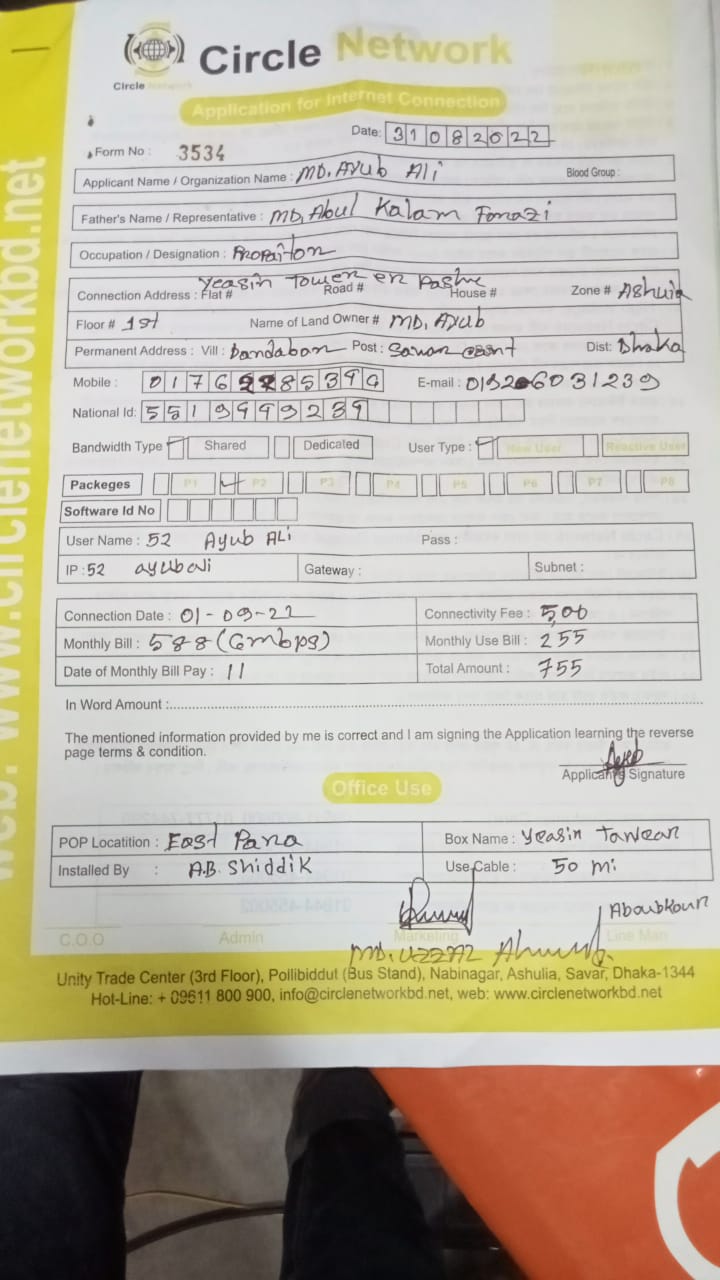 Circle Network
Circle Network
Application for Internet Connection
Date: 31082022
Form No : 3534
Applicant Name / Organization Name : MD. Ayub Ali Blood Group :
Father's Name / Representative : MD, Abul Kalam Fonazi
Occupation / Designation : Propaiton
Yeasin Tower er Pashe
Connection Address : Flat # Road # House # Zone # Ashulia
Floor # 1st Name of Land Owner # MD. Ayub
Permanent Address : Vill : Dandaban Post : Savar cant Dist: Dhaka
Mobile : 0176 85394 E-mail : 01326031239
National Id: 5519999239
Bandwidth Type Shared Dedicated User Type : New User Reactive User
Packeges P1 P2 P3 P4 P5 P6 P7 P8
Software Id No
User Name : 52 Ayub ALi Pass :
IP : 52 ayubali Gateway : Subnet :
Connection Date : 01-09-22 Connectivity Fee : 500
Monthly Bill : 588 (6mbps) Monthly Use Bill : 255
Date of Monthly Bill Pay : 11 Total Amount : 755
In Word Amount :
The mentioned information provided by me is correct and I am signing the Application learning the reverse
page terms & condition.
Ayub
Applicant's Signature
Office Use
POP Locatition : East Para Box Name : Yeasin Tawear
Installed By : A.B. Shiddik Use Cable : 50 mi
Aboubkour
C.O.O Admin Marketing Line Man
MD. UZZAL Ahmed
Unity Trade Center (3rd Floor), Pollibiddut (Bus Stand), Nabinagar, Ashulia, Savar, Dhaka-1344
Hot-Line: + 09611 800 900, info@circlenetworkbd.net, web: www.circlenetworkbd.net
web: www.circlenetworkbd.net